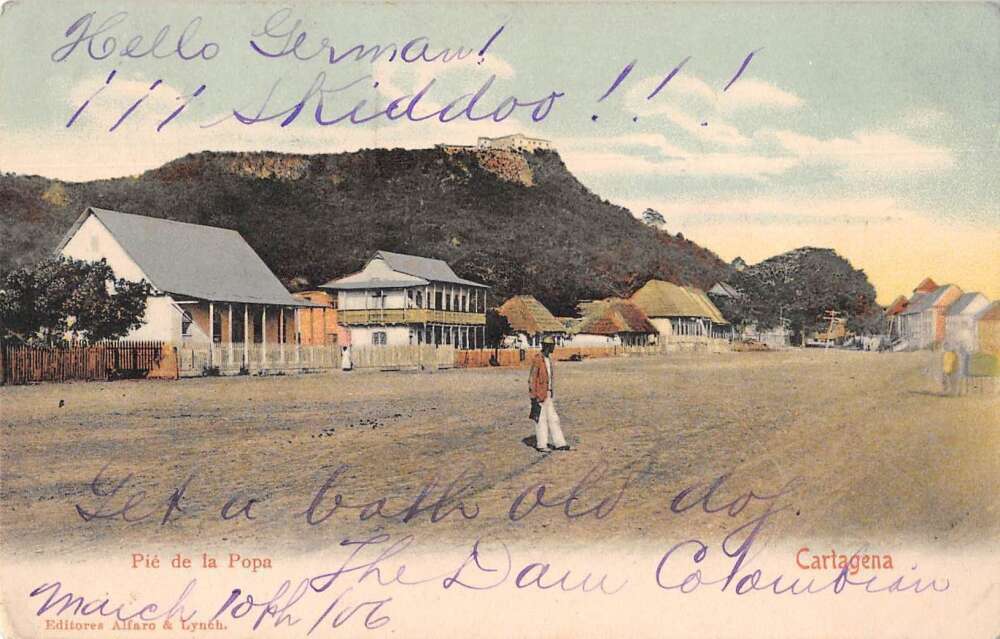 Hello German!
! ! ! Skiddoo ! ! !
Get a bath old dog.
Pié de la Popa
Cartagena
The Dam Colombian
March 10th / 06
Editores Alfaro & Lynch.